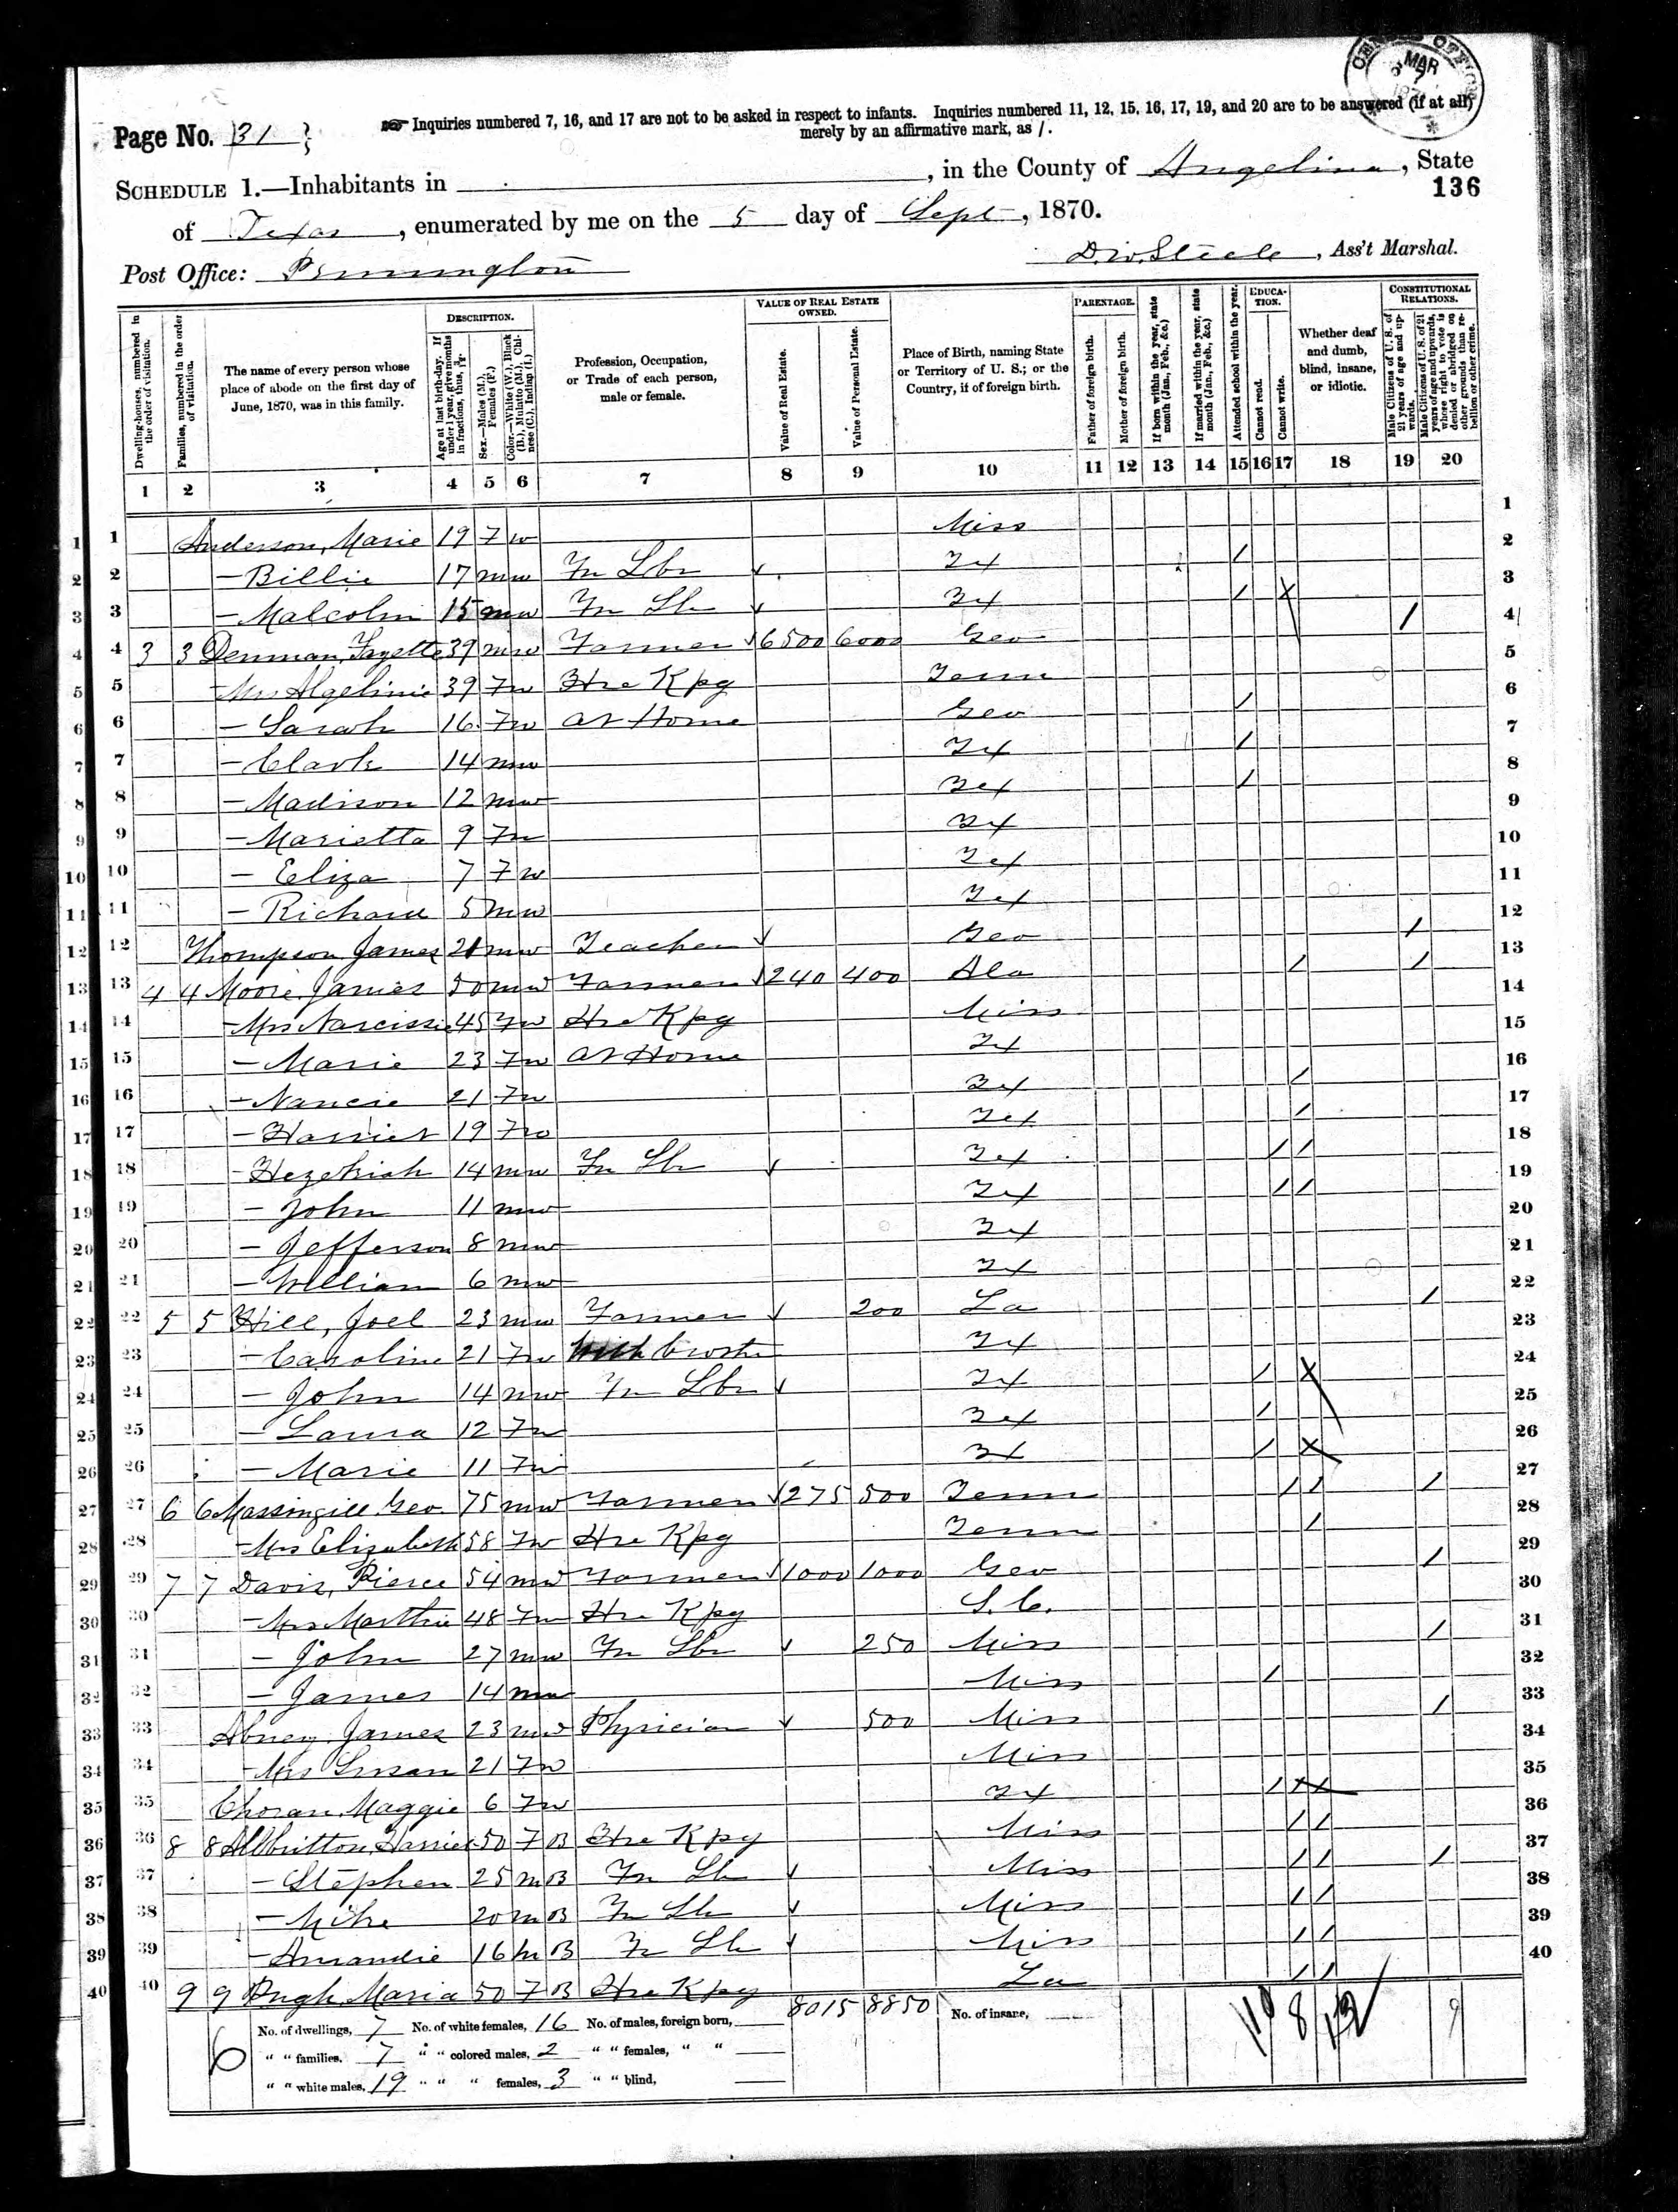 CENSUS OFFICE MAR
Page No. 31
☞ Inquiries numbered 7, 16, and 17 are not to be asked in respect to infants. Inquiries numbered 11, 12, 15, 16, 17, 19, and 20 are to be answered (if at all)
merely by an affirmative mark, as /.
SCHEDULE 1.—Inhabitants in , in the County of Angelina, State
136
of Texas, enumerated by me on the 5 day of Sept, 1870.
Post Office: Pennington
D.W. Steele, Ass't Marshal.
Dwelling-houses, numbered in the order of visitation.
Families, numbered in the order of visitation.
The name of every person whose place of abode on the first day of June, 1870, was in this family.
DESCRIPTION.
Age at last birth-day. If under 1 year, give months in fractions, thus,
Sex.—Males (M.), Females (F.)
Color.—White (W.), Black (B.), Mulatto (M.), Chinese (C.), Indian (I.)
Profession, Occupation, or Trade of each person, male or female.
VALUE OF REAL ESTATE OWNED.
Value of Real Estate.
Value of Personal Estate.
Place of Birth, naming State or Territory of U. S.; or the Country, if of foreign birth.
PARENTAGE.
Father of foreign birth.
Mother of foreign birth.
If born within the year, state month (Jan., Feb., &c.)
If married within the year, state month (Jan., Feb., &c.)
Attended school within the year.
EDUCATION.
Cannot read.
Cannot write.
Whether deaf and dumb, blind, insane, or idiotic.
CONSTITUTIONAL RELATIONS.
Male Citizens of U. S. of 21 years of age and upwards.
Male Citizens of U. S. of 21 years of age and upwards, whose right to vote is denied or abridged on other grounds than rebellion or other crime.
1 2 3 4 5 6 7 8 9 10 11 12 13 14 15 16 17 18 19 20
1 1 Anderson, Marie 19 F W Miss 1
2 2 — Billie 17 M W Fm Lbr Tex / 2
3 3 — Malcolm 15 M W Fm Lb Tex / X 3
4 4 3 3 Denman, Fayette 39 M W Farmer 6500 6000 Geo / 4
5 5 — Mrs Algelinie 39 F W Hse Kpg Tenn 5
6 6 — Sarah 16 F W At Home Geo / 6
7 7 — Clark 14 M W Tex / 7
8 8 — Madison 12 M W Tex / 8
9 9 — Marietta 9 F W Tex 9
10 10 — Eliza 7 F W Tex 10
11 11 — Richard 5 M W Tex 11
12 12 Thompson James 21 M W Teacher Geo / 12
13 13 4 4 Moore James 50 M W Farmer 240 400 Ala / / 13
14 14 — Mrs Narcissie 45 F W Hse Kpg Miss 14
15 15 — Marie 23 F W At Home Tex 15
16 16 — Nancie 21 F W Tex / 16
17 17 — Harriet 19 F W Tex / 17
18 18 — Hezekiah 14 M W Fm Lb Tex / / 18
19 19 — John 11 M W Tex / / 19
20 20 — Jefferson 8 M W Tex 20
21 21 — William 6 M W Tex 21
22 22 5 5 Hill, Joel 23 M W Farmer 200 La / 22
23 23 — Caroline 21 F W With Brother Tex 23
24 24 — John 14 M W Fm Lbr Tex / X 24
25 25 — Laura 12 F W Tex / 25
26 26 — Marie 11 F W Tex / X 26
27 27 6 6 Massingill Geo. 75 M W Farmer 275 500 Tenn / / / 27
28 28 — Mrs Elizabeth 58 F W Hse Kpg Tenn / 28
29 29 7 7 Davis, Pierce 54 M W Farmer 1000 1000 Geo / 29
30 30 — Mrs Marthie 48 F W Hse Kpg S.C. 30
31 31 — John 27 M W Fm Lbr 250 Miss / 31
32 32 — James 14 M W Miss / 32
33 33 Abney James 23 M W Physician 500 Miss / 33
34 34 — Mrs Susan 21 F W Miss 34
35 35 Maggie 6 F W Tex / X X 35
36 36 8 8 Allbritton, Harriet 50 F B Hse Kpg Miss / / 36
37 37 — Stephen 25 M B Fm Lb Miss / / / 37
38 38 — Mike 20 M B Fm Lb Miss / / 38
39 39 — Amandie 16 M B Fm Lb Miss / / 39
40 40 9 9 Pugh Maria 50 F B Hse Kpg La / / 40
6 No. of dwellings, 7 No. of white females, 16 No. of males, foreign born, 8015 8850 No. of insane, 11 8 9
" " families, 7 " " colored males, 2 " " females, " "
" " white males, 19 " " " females, 3 " " blind,